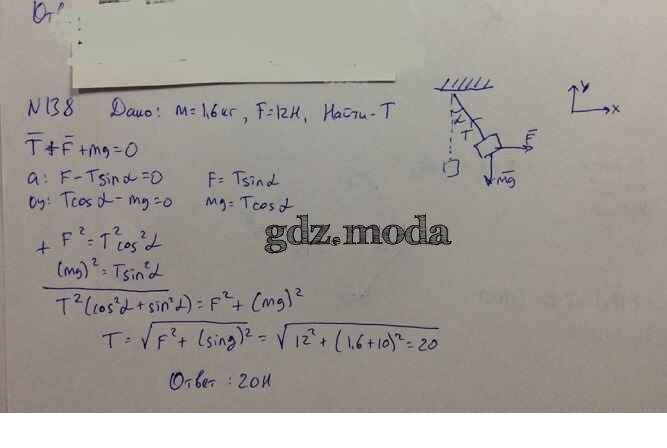 Отв
N138 Дано: m=1,6кг, F=12Н, Найти-T
T̅+F̅+mg=0
a: F-Tsinα=0 F=Tsinα
oy: Tcosα-mg=0 mg=Tcosα
+ F²=T²cos²α
(mg)²=Tsin²α
T²(cos²α+sin²α)=F²+(mg)²
T=√F²+(sing)²=√12²+(1,6+10)²=20
Ответ: 20Н
y
x
α
T
F̅
m̅g
gdz.moda